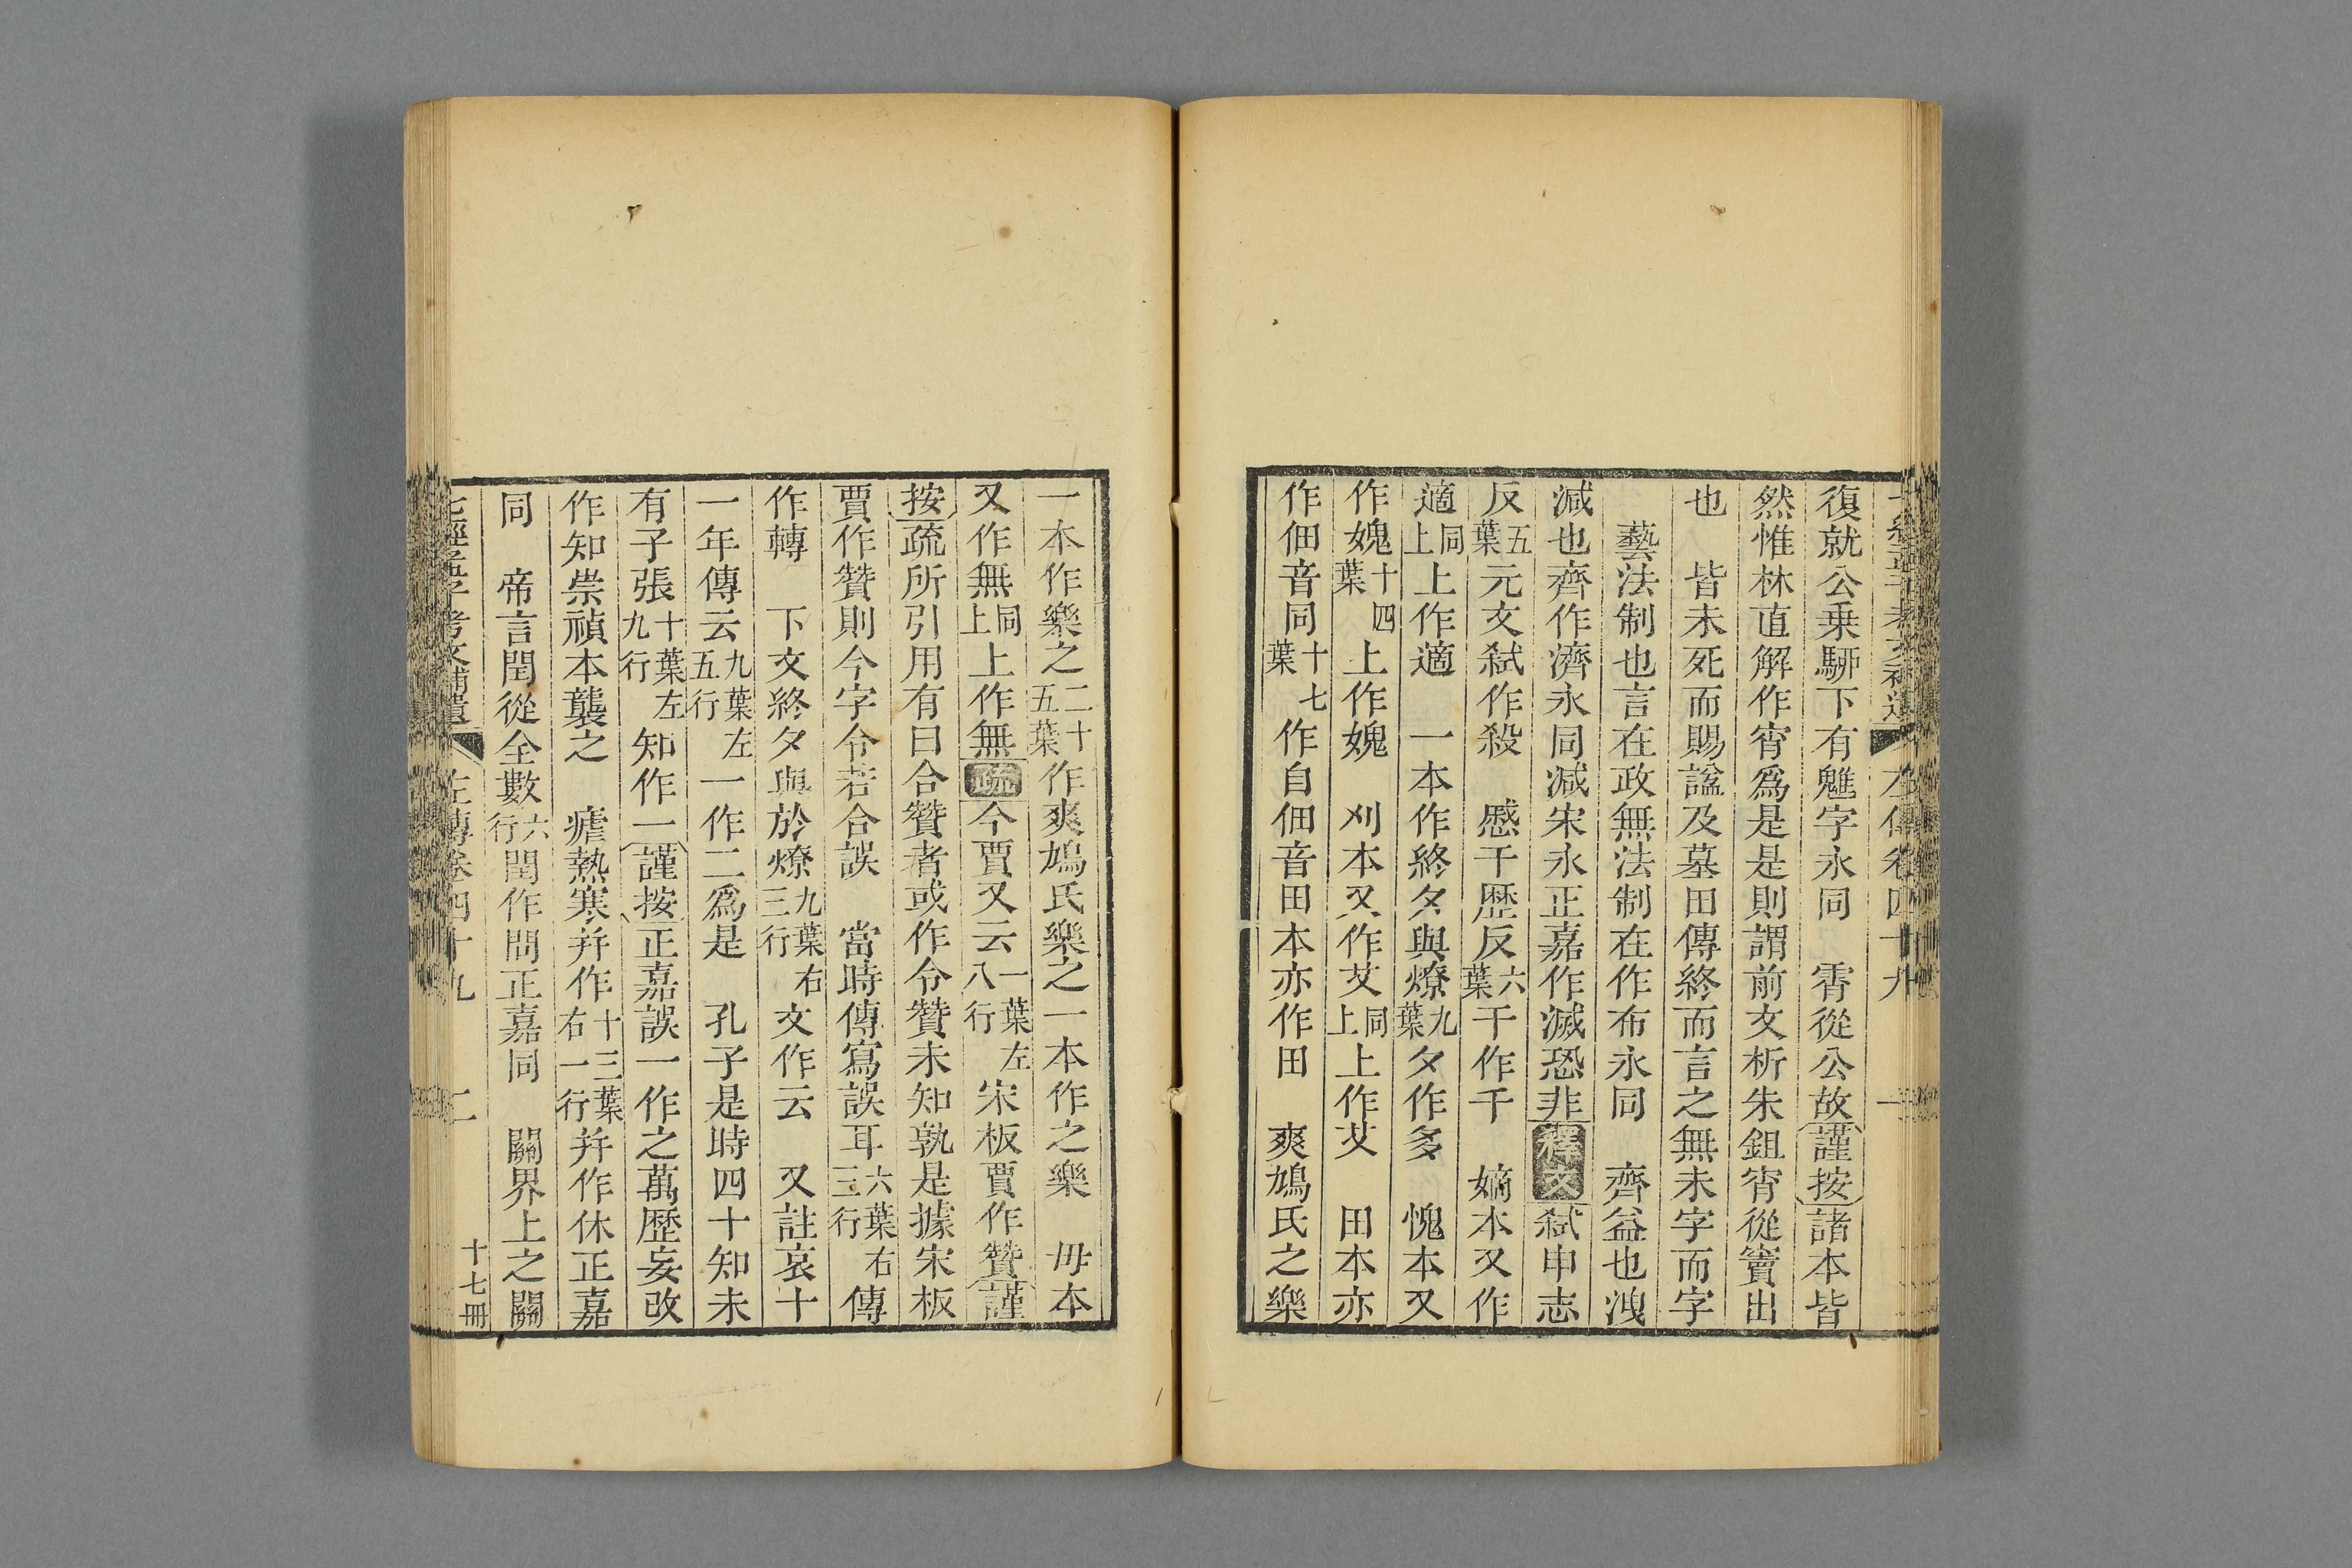 復就公乗駵下有魋字永同　霄從公故謹按諸本皆
然惟林直解作宵爲是是則謂前文析朱鉏宵從竇出
也　皆未死而賜諡及墓田傳終而言之無未字而字
藝法制也言在政無法制在作布永同　齊益也洩
減也齊作濟永同減宋永正嘉作滅恐非釋文弑申志
反五葉元文弑作殺　慼干歷反六葉干作千　嫡本又作
適同上上作適　一本作終夕與燎九葉夕作多　愧本又
作媿十四葉上作媿　刈本又作艾同上上作艾　田本亦
作佃音同十七葉作自佃音田本亦作田　爽鳩氏之樂
一本作樂之二十五葉作爽鳩氏樂之一本作之樂　毋本
又作無同上上作無疏今賈又云一葉左八行宋板賈作贊謹
按疏所引用有曰合贊者或作令贊未知孰是據宋板
賈作贊則今字令若合誤　當時傳寫誤耳六葉右三行傳
作轉　下文終夕與於燎九葉右三行文作云　又註哀十
一年傳云九葉左五行一作二爲是　孔子是時四十知未
有子張十葉左九行知作一謹按正嘉誤一作之萬歷妄改
作知崇禎本襲之　瘧熱寒并作十三葉右一行并作休正嘉
同　帝言閏從全數六行閏作問正嘉同　關界上之關
七經孟子考文補遺　左傳卷四十九　二　十七冊